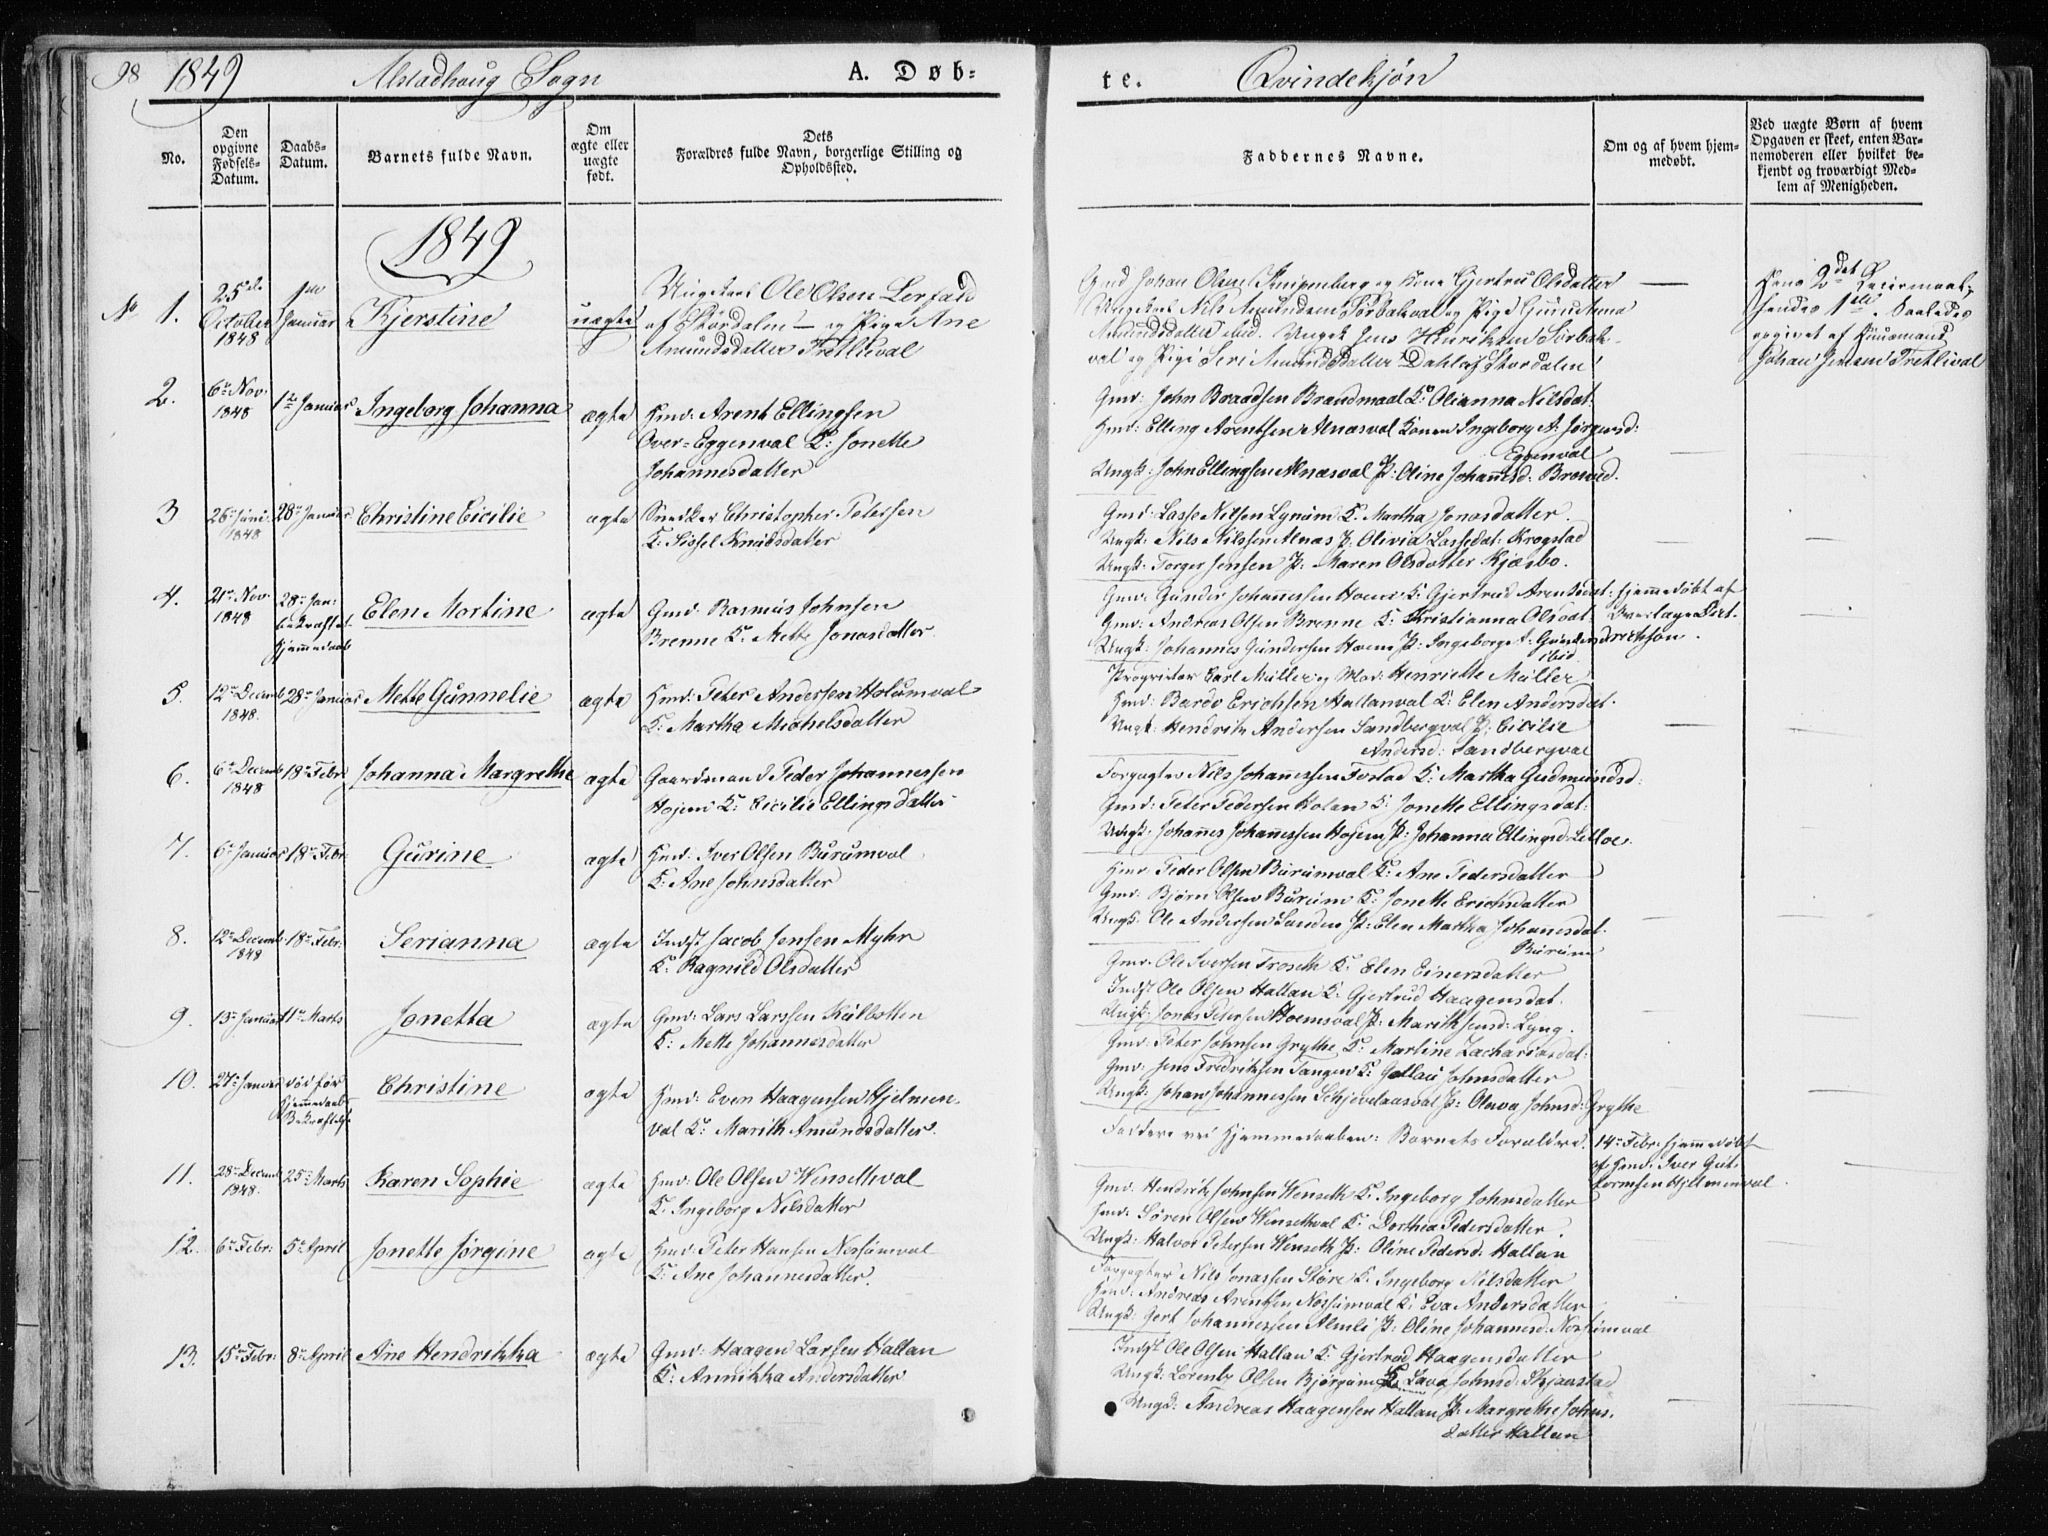 98 1849 Alstadhoug Sogn A. Døb-
te. Qvindekjøn
No.
Den opgivne Fødsels-Datum.
Daabs-Datum.
Barnets fulde Navn.
Om ægte eller uægte født.
Dets
Forældres fulde Navn, borgerlige Stilling og
Opholdssted.
Faddernes Navne.
Om og af hvem hjem-
medøbt.
Ved uægte Børn af hvem
Opgaven er skeet, enten Bar-
nemoderen eller hvilket be-
kjendt og troværdigt Med-
lem af Menigheden.
1849
No 1. 25de October 1848 1ste Januar Kjerstine uægte
Ungkarl Ole Olsen Lerfald
af Størdalen – og Pige Ane
Amundsdatter Tretlival
Johan Olsen og Kone Gjertru Olsdatter
Ungkarl Nils Amundsen
af Størdalen
Hans 2det Leiermaal,
hendes 1ste. Saaledes
opgivet af
Johan Jensen Tretlival
2. 6te Nov. 1848 1te Januar Ingeborg Johanna ægte
Hmd: Arent Ellingsen
Over-Eggenval K: Jonette
Johannesdatter
Gmd: John Braadsen Brandmaal K: Olianna Nilsdat.
Hmd: Elling Arentsen Alnæsval Konen Ingeborg A. Jørgensd:
Eggenval
Ungk: John Ellingsen Alnæsval P: Oline Johannesd:
3 1848 28de Januar Christine Cicilie ægte
Snedker Christopher Petersen
K: Sissel Knudsdatter
Gmd: Lasse Nilsen Lynum K. Martha Jonasdatter.
Ungk: Nils Nilssen Alnæs P: Olivia Lassedat: Krogstad
Ungk: Torger Jensen P: Maren Olsdatter Kjæsbo.
4. 21de Nov. 1848 28de Jan: bekræftet Hjemmedaab Elen Martine ægte
Gmd: Rasmus Johnsen
Brenne K. Mette Jonasdatter.
Gmd: Gunder Johannessen Hoem K: Gjertrud Arentsdat:
Gmd: Andreas Olsen Brenne K: Christianna Olsdat.
Ungk: Johannes Gundersen Hoem P: Ingeborg A. Gundersd:
ibid.
Hjemmedøbt af
5. 12te Decemb 1848. 28de Januar Mette Gunnelie ægte
Hmd: Peter Andersen Holumval
K: Martha Michelsdatter
Proprietør Carl Müller og Mad: Henriette Müller
Hmd: Bardo Erichsen Hallanval K: Elen Andersdat.
Ungk: Hendrik Andersen Sandbergval P: Cicilie
Andersd: Sandbergval
6. 6te Decemb 1848 18de Febr. Johanna Margrethe ægte
Gaardmand Peder Johannessen
Hojem K: Cicilie Ellingsdatter
Forpagter Nils Johannessen Fostad K: Martha Gudmundsd:
Gmd: Peter Pedersen Kolan K: Jonette Ellingsdat:
Ungk: Johannes Johannessen Hojem P: Johanna Ellingsd:
7. 6te Januar 18de Febr. Gurine ægte
Hmd: Iver Olsen Burumval
K: Ane Johnsdatter
Hmd: Peder Olsen Burumval K: Ane Pedersdatter
Gmd: Bjørn Olsen Burum K: Jonette Erichsdatter
Ungk: Ole Andersen Sanden P: Elen Martha Johannesdat.
Burum
8. 12te Decemb. 1848 18de Febr: Serianna ægte
Indst Jacob Jensen Myhr
K: Ragnild Olsdatter
Gmd: Ole Iversen Troseth K: Elen Einersdatter
Indst Ole Olsen Hallan K: Gjertrud Haagensdat.
Ungk: Jonas Petersen Hoemsval P: Marith Jensd: Lyng.
9. 13de Januar 11te Marts Jonetta ægte
Gmd: Lars Larssen Kulbotten
K: Mette Johannesdatter
Gmd: Peter Johnsen Grythe K: Martine Zachariasdat:
Gmd: Jens Fredriksen Tangen K: Jollau Johnsdatter
Ungk: Johan Johannessen P: Oluva Johnsd: Grythe
10. 27de Januar død før Hjemmedaabs Bekræftelse Christine ægte
Hmd: Even Haagensen Hjelmen-
val K: Marith Amundsdatter.
Faddere ved Hjemmedaaben: Barnets Forældre.
14de Febr: hjemmedøbt
af Hmd: Iver Gut-
tormsen Hjelmenval
11. 28de Decemb 1848. 25de Marts Karen Sophie ægte
Hmd: Ole Olsen Wensethval
K: Ingeborg Nilsdatter
Gmd: Hendrik Johnsen Wenseth K: Ingeborg Johnsdatter
Hmd: Søren Olsen Wensethval K: Dorthea Pedersdatter.
Ungk: Halvor Petersen Wenseth P: Oline Pedersd: Hallan
12. 6te Febr: 5te April Jonette Jørgine ægte
Hmd: Peter Hansen Nossumval
K: Ane Johannesdatter.
Forpagter Nils Jonassen Støre K: Ingeborg Nilsdatter
Hmd: Andreas Arentsen Nossumval K: Eva Andersdatter
Ungk: Gert Johannessen Almli P: Oline Johannesd: Nossumval
13. 15de Febr: 8de April Ane Hendrikka ægte
Gmd: Haagen Larsen Hallan
K: Annikka Andersdatter
Indst Ole Olsen Hallan K: Gjertrud Haagensdatter
Ungk: Lorents Olsen Johnsd:
Ungk: Andreas Haagensen Hallan P: Margrethe Johns.
datter Hallan